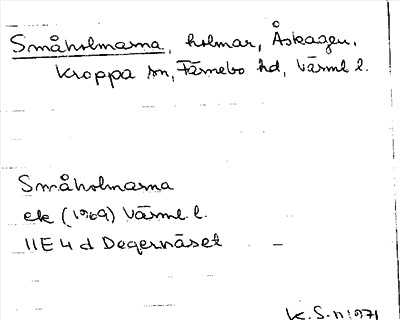 Småholmarna, holmar, Åskagen,
Kroppa sn, Färnebo hd, Värml l.
Småholmarna
ek (1969) Värml. l.
11E 4 d Degernäset –
K. S. n 1971